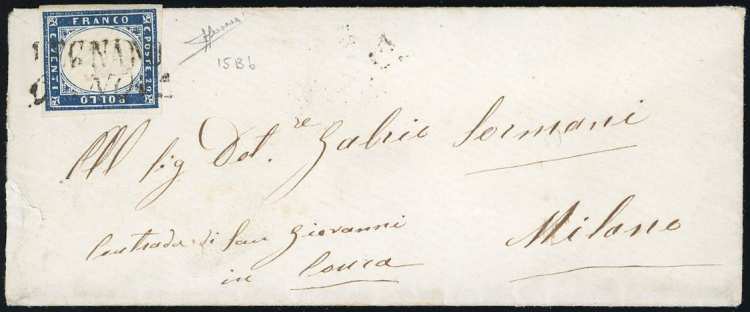 FRANCO
C. POSTE 20
BOLLO
CENTI
15Bb
All Sig Dot.re Gabrio Sormani
Contrada di San Giovanni
in Conca
Milano